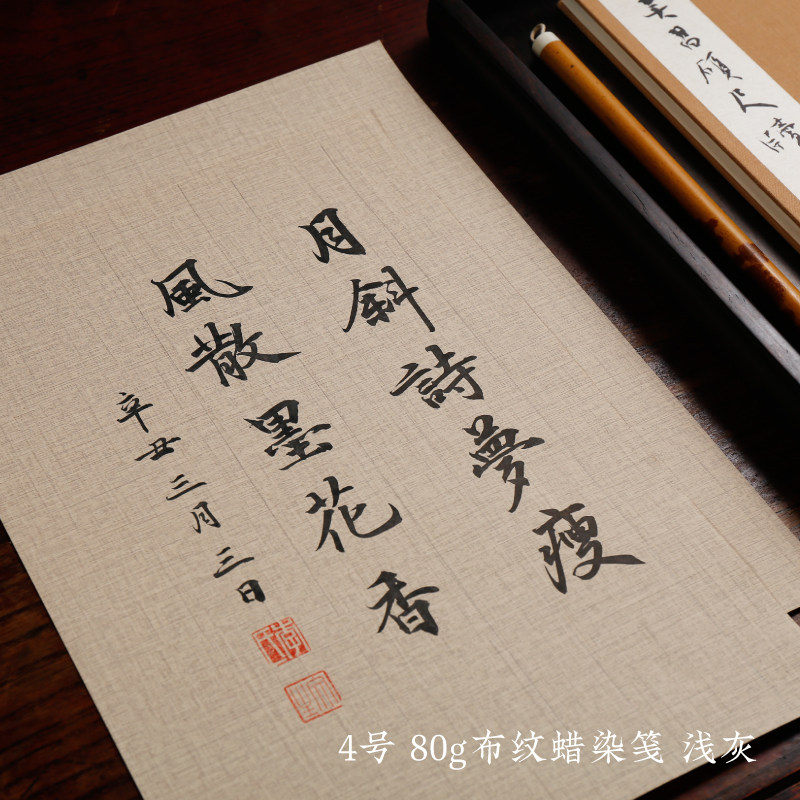 月斜詩夢瘦
風散墨花香
辛丑三月三日
吴昌碩尺牘
4号 80g布纹蜡染笺 浅灰